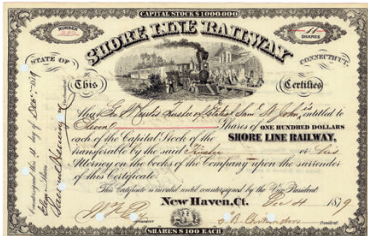 CAPITAL STOCK $1,000,000
NUMBER
11
SHARES
SHORE LINE RAILWAY
STATE OF
CONNECTICUT.
This
Certifies
that
Trustee
St John is entitled to
Eleven
Shares of ONE HUNDRED DOLLARS
each of the Capital Stock of the SHORE LINE RAILWAY,
transferable by the said Trustee or his
Attorney on the books of the Company upon the surrender
of this Certificate
This Certificate is invalid until countersigned by the Vice President
New Haven, Ct. Dec 4 1879
SHARES $100 EACH